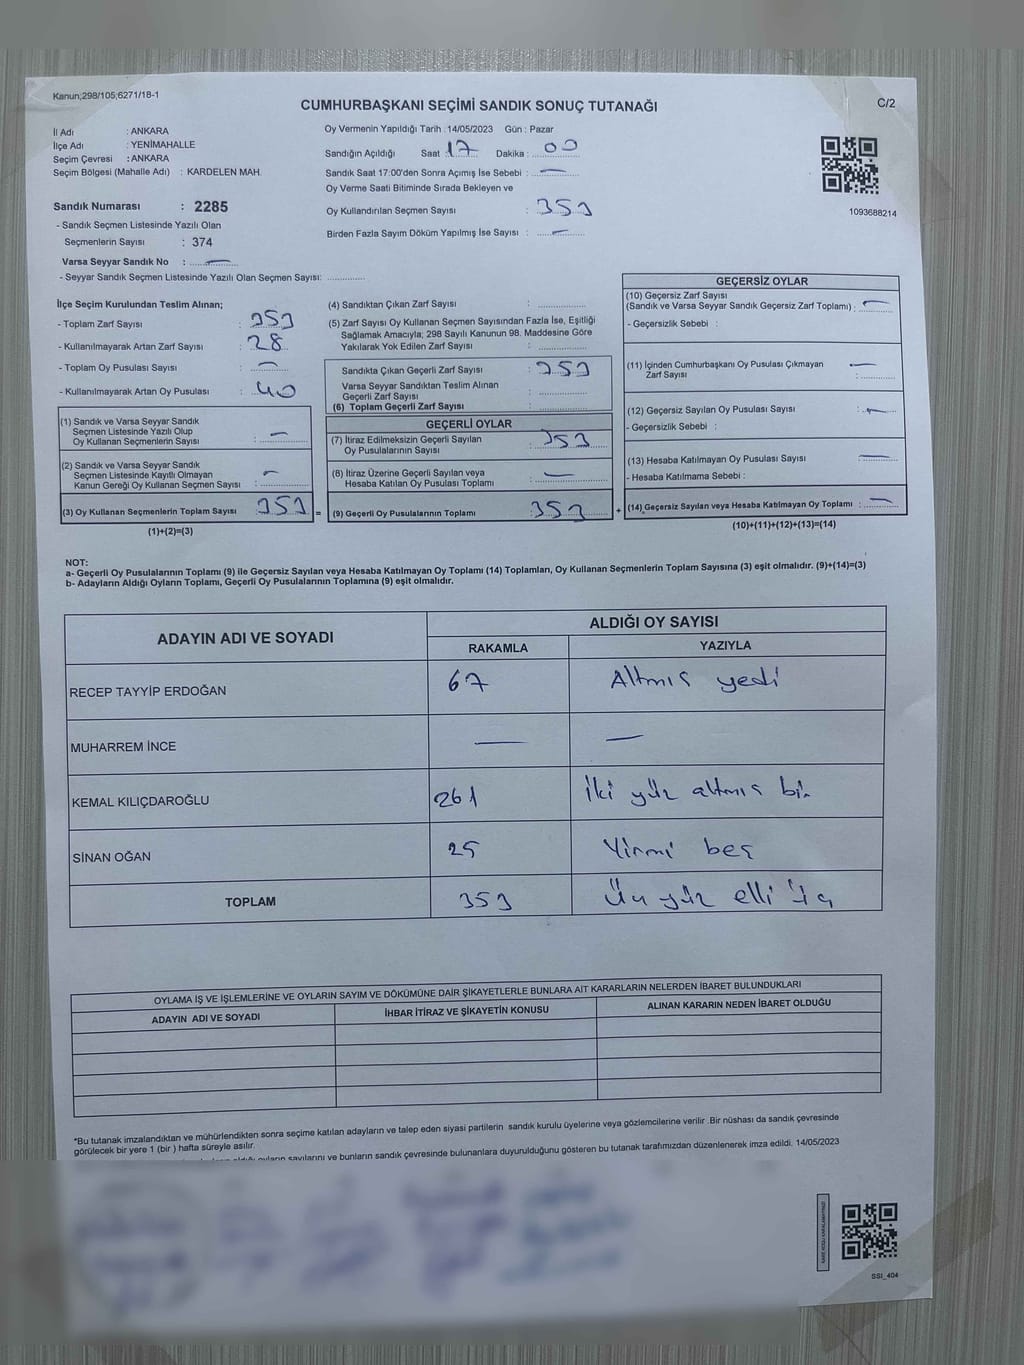 Kanun;298/105;6271/18-1
CUMHURBAŞKANI SEÇİMİ SANDIK SONUÇ TUTANAĞI
C/2
İl Adı : ANKARA
İlçe Adı : YENİMAHALLE
Seçim Çevresi : ANKARA
Seçim Bölgesi (Mahalle Adı) : KARDELEN MAH.
Sandık Numarası : 2285
- Sandık Seçmen Listesinde Yazılı Olan
Seçmenlerin Sayısı : 374
Varsa Seyyar Sandık No : —
- Seyyar Sandık Seçmen Listesinde Yazılı Olan Seçmen Sayısı: ..............
Oy Vermenin Yapıldığı Tarih : 14/05/2023 Gün : Pazar
Sandığın Açıldığı Saat : 17 Dakika : 00
Sandık Saat 17:00'den Sonra Açımış İse Sebebi : —
Oy Verme Saati Bitiminde Sırada Bekleyen ve
Oy Kullandırılan Seçmen Sayısı : 353
Birden Fazla Sayım Döküm Yapılmış İse Sayısı : —
1093688214
İlçe Seçim Kurulundan Teslim Alınan;
- Toplam Zarf Sayısı : 353
- Kullanılmayarak Artan Zarf Sayısı : 28
- Toplam Oy Pusulası Sayısı : —
- Kullanılmayarak Artan Oy Pusulası : 40
(1) Sandık ve Varsa Seyyar Sandık
Seçmen Listesinde Yazılı Olup
Oy Kullanan Seçmenlerin Sayısı : —
(2) Sandık ve Varsa Seyyar Sandık
Seçmen Listesinde Kayıtlı Olmayan
Kanun Gereği Oy Kullanan Seçmen Sayısı : —
(3) Oy Kullanan Seçmenlerin Toplam Sayısı : 353 =
(1)+(2)=(3)
(4) Sandıktan Çıkan Zarf Sayısı : ..............
(5) Zarf Sayısı Oy Kullanan Seçmen Sayısından Fazla İse, Eşitliği
Sağlamak Amacıyla; 298 Sayılı Kanunun 98. Maddesine Göre
Yakılarak Yok Edilen Zarf Sayısı : ..............
Sandıkta Çıkan Geçerli Zarf Sayısı : 353
Varsa Seyyar Sandıktan Teslim Alınan
Geçerli Zarf Sayısı : ..............
(6) Toplam Geçerli Zarf Sayısı : ..............
GEÇERLİ OYLAR
(7) İtiraz Edilmeksizin Geçerli Sayılan
Oy Pusulalarının Sayısı : 353
(8) İtiraz Üzerine Geçerli Sayılan veya
Hesaba Katılan Oy Pusulası Toplamı : —
(9) Geçerli Oy Pusulalarının Toplamı : 353 +
GEÇERSİZ OYLAR
(10) Geçersiz Zarf Sayısı
(Sandık ve Varsa Seyyar Sandık Geçersiz Zarf Toplamı) : —
- Geçersizlik Sebebi :
(11) İçinden Cumhurbaşkanı Oy Pusulası Çıkmayan
Zarf Sayısı : —
(12) Geçersiz Sayılan Oy Pusulası Sayısı : —
- Geçersizlik Sebebi :
(13) Hesaba Katılmayan Oy Pusulası Sayısı : —
- Hesaba Katılmama Sebebi :
(14) Geçersiz Sayılan veya Hesaba Katılmayan Oy Toplamı : —
(10)+(11)+(12)+(13)=(14)
NOT:
a- Geçerli Oy Pusulalarının Toplamı (9) ile Geçersiz Sayılan veya Hesaba Katılmayan Oy Toplamı (14) Toplamları, Oy Kullanan Seçmenlerin Toplam Sayısına (3) eşit olmalıdır. (9)+(14)=(3)
b- Adayların Aldığı Oyların Toplamı, Geçerli Oy Pusulalarının Toplamına (9) eşit olmalıdır.
ADAYIN ADI VE SOYADI
ALDIĞI OY SAYISI
RAKAMLA YAZIYLA
RECEP TAYYİP ERDOĞAN 67 Altmış yedi
MUHARREM İNCE — —
KEMAL KILIÇDAROĞLU 261 İki yüz altmış bir
SİNAN OĞAN 25 Yirmi beş
TOPLAM 353 Üç yüz elli üç
OYLAMA İŞ VE İŞLEMLERİNE VE OYLARIN SAYIM VE DÖKÜMÜNE DAİR ŞİKAYETLERLE BUNLARA AİT KARARLARIN NELERDEN İBARET BULUNDUKLARI
ADAYIN ADI VE SOYADI İHBAR İTİRAZ VE ŞİKAYETİN KONUSU ALINAN KARARIN NEDEN İBARET OLDUĞU
*Bu tutanak imzalandıktan ve mühürlendikten sonra seçime katılan adayların ve talep eden siyasi partilerin sandık kurulu üyelerine veya gözlemcilerine verilir .Bir nüshası da sandık çevresinde
görülecek bir yere 1 (bir ) hafta süreyle asılır.
oyların sayılarını ve bunların sandık çevresinde bulunanlara duyurulduğunu gösteren bu tutanak tarafımızdan düzenlenerek imza edildi. 14/05/2023
SSI_404